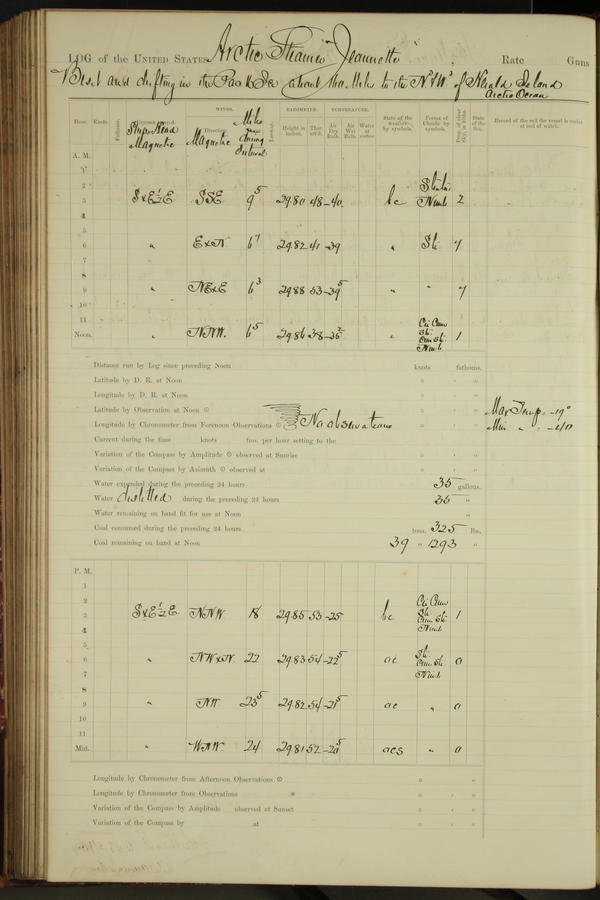 LOG of the UNITED STATES Arctic Steamer Jeannette, Rate Guns
Beset and drifting in the Pack Ice about 300 Miles to the N & W of Herald Island
Arctic Ocean
Hour. Knots. Fathoms. Ship's Head Magnetic WINDS. Direction Magnetic Miles during Interval Leeway. BAROMETER. Height in inches. Ther. att'd. TEMPERATURE. Air Dry Bulb. Air Wet Bulb. Water at surface. State of the weather, by symbols. Forms of Clouds by symbols. State of the Sea. Record of the sail the vessel is under at end of watch.
A. M.
1
2
3 SxE½E SSE 9 5 29.80 48 -40 bc Strata Nimb 2
4
5
6 " ExN 6 7 29.82 41 -39 " Str. 7
7
8
9 " NExE 6 3 29.88 53 -39 5 " " 7
10
11
Noon. " NNW. 6 5 29.86 38 -35 2 " Cir Cum Str. Cum Str. Nimb 1
Distance run by Log since preceding Noon knots fathoms.
Latitude by D. R. at Noon
Longitude by D. R. at Noon
Latitude by Observation at Noon ⊙ Max Temp. -19°
Longitude by Chronometer from Forenoon Observations ⊙ No observations Min " " -40
Current during the time knots fms. per hour setting to the
Variation of the Compass by Amplitude ⊙ observed at Sunrise
Variation of the Compass by Azimuth ⊙ observed at
Water expended during the preceding 24 hours 35 gallons.
Water distilled during the preceding 24 hours 35 "
Water remaining on hand fit for use at Noon "
Coal consumed during the preceding 24 hours tons. 325 lbs.
Coal remaining on hand at Noon 39 " 1293 "
P. M.
1
2
3 SxE½E. NNW 18 29.85 53 -25 bc Cir Cum Str. Cum Str. Nimb 1
4
5
6 " NWxN. 22 29.83 54 -22 5 ac Str. Cum Str. Nimb 0
7
8
9 " NW 23 5 29.82 54 -21 5 ac " 0
10
11
Mid. " WNW. 24 29.81 52 -20 5 acs " 0
Longitude by Chronometer from Afternoon Observations ⊙
Longitude by Chronometer from Observations
Variation of the Compass by Amplitude observed at Sunset
Variation of the Compass by at